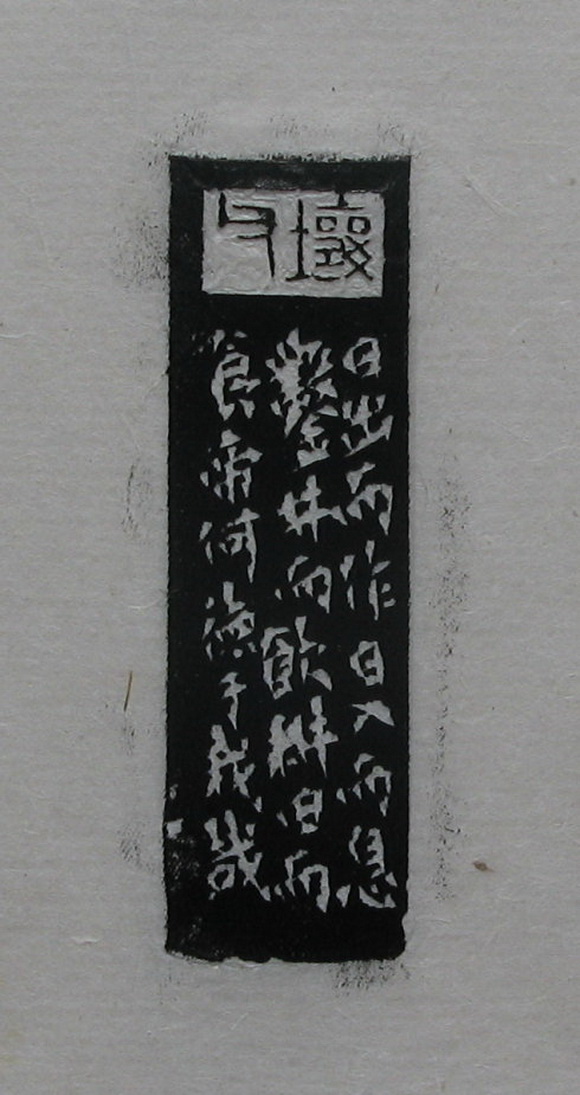 壤父
日出而作日入而息
鑿井而飲耕田而
食帝何德于我哉